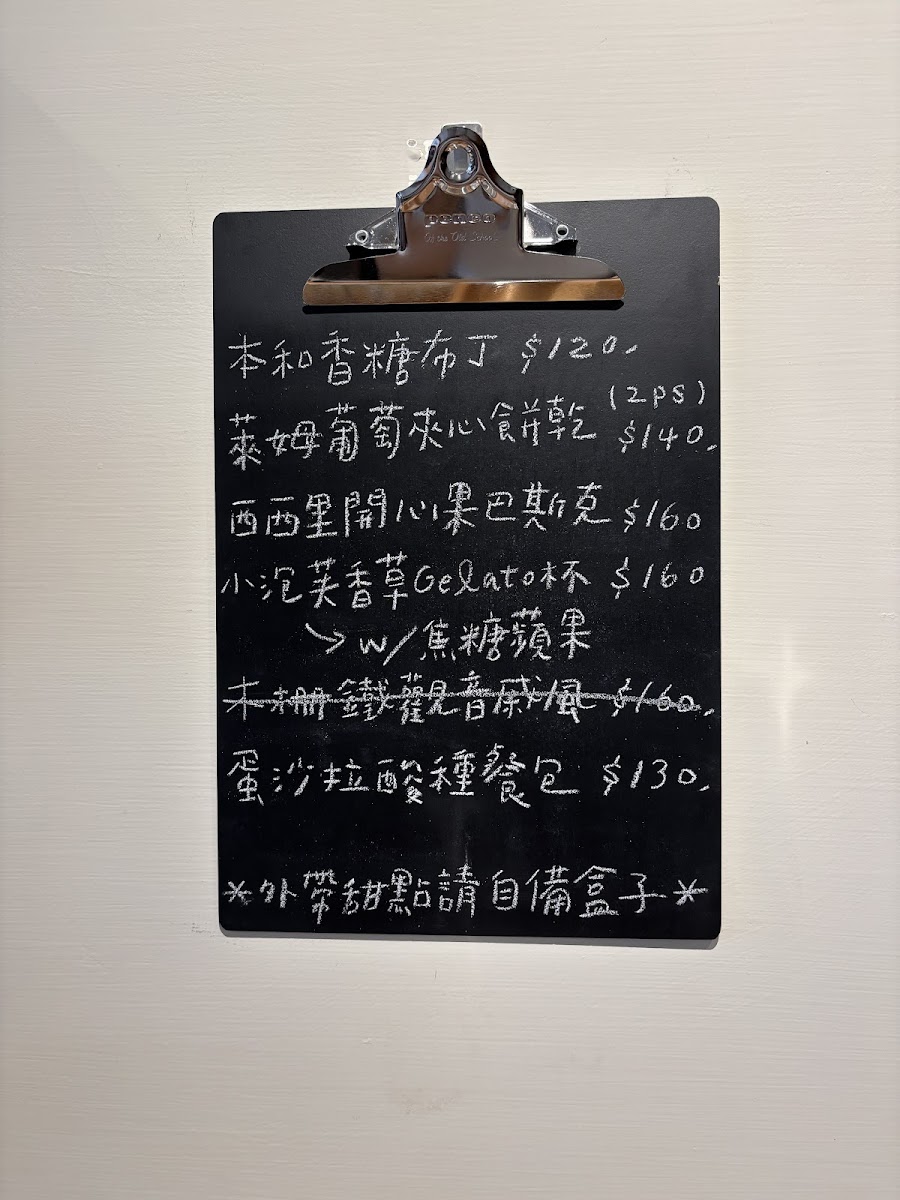 penco
Of the Old School
本和香糖布丁 $120.
(2ps)
萊姆葡萄夾心餅乾 $140.
西西里開心果巴斯克 $160
小泡芙香草Gelato杯 $160
↘ w/焦糖蘋果
木柵鐵觀音戚風 $160.
蛋沙拉酸種餐包 $130.
*外帶甜點請自備盒子*